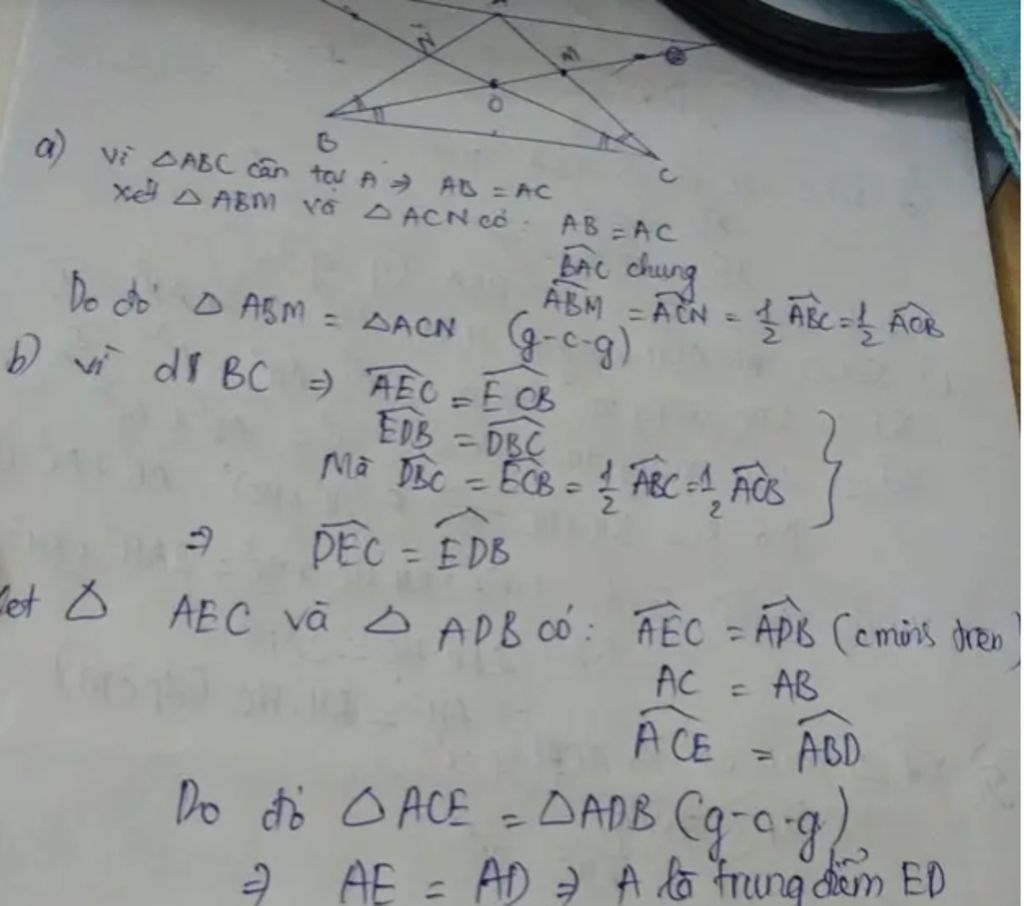 A
N
M
O
B
C
a) Vì △ABC cân tại A ⇒ AB = AC
Xét △ABM và △ACN có: AB = AC
B̂AC chung
ÂBM = ÂCN = 1/2 ÂBC = 1/2 ÂCB
Do đó △ABM = △ACN (g-c-g)
b) Vì d∥BC ⇒ ÂEC = ÊCB
ÊDB = D̂BC
Mà D̂BC = ÊCB = 1/2 ÂBC = 1/2 ÂCB }
⇒ D̂EC = ÊDB
△ AEC và △ ADB có: ÂEC = ÂDB (cmois tren)
AC = AB
ÂCE = ÂBD
Do đó △ACE = △ADB (g-c-g)
⇒ AE = AD ⇒ A là trung điểm ED